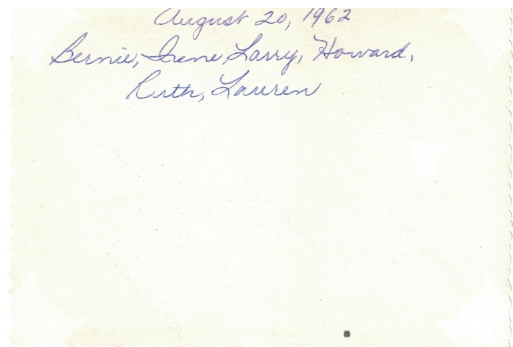 August 20, 1962
Bernie, Irene, Larry, Howard,
Ruth, Lauren